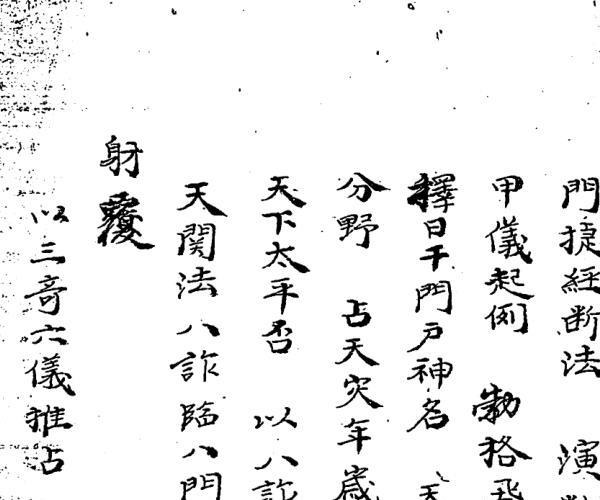 門捷経断法 演
甲儀起例 勃格飛
擇日干門戸神名 天
分野 占天灾年歳
天下太平否 以八詐
天関法八詐臨八門
射覆
以三奇六儀推占